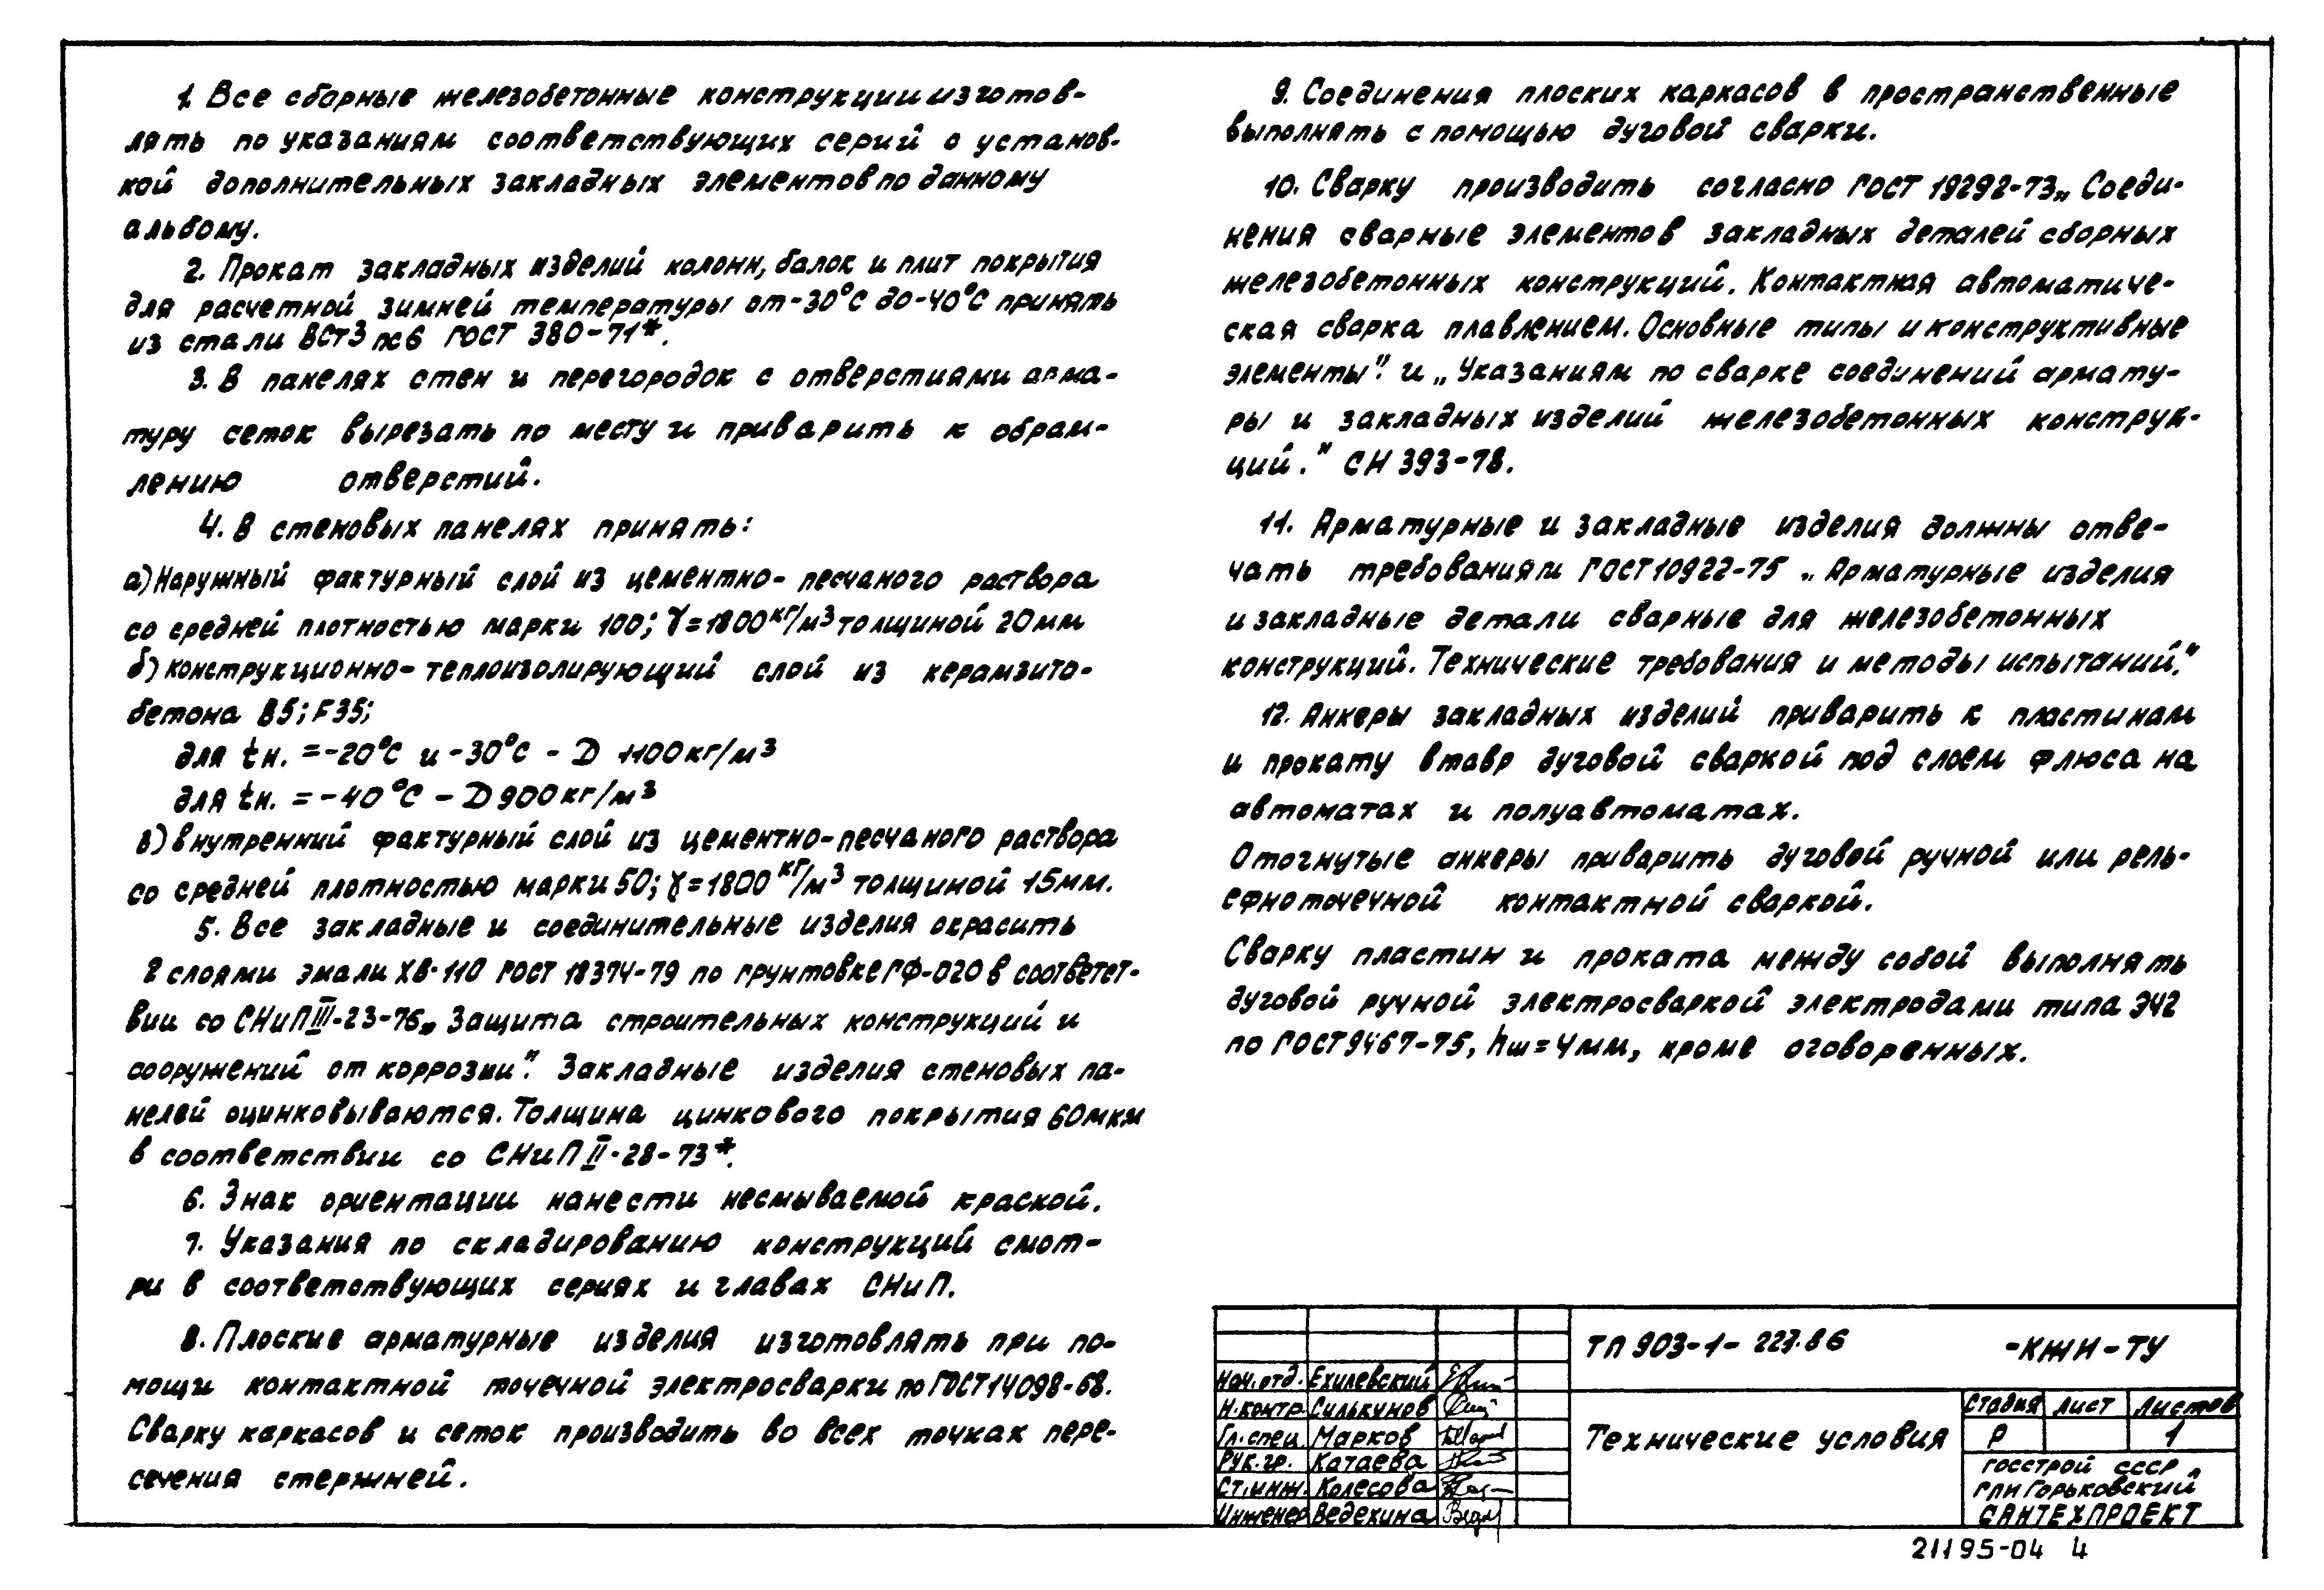 1. Все сборные железобетонные конструкции изготов-
лять по указаниям соответствующих серий с установ-
кой дополнительных закладных элементов по данному
альбому.
2. Прокат закладных изделий колонн, балок и плит покрытия
для расчетной зимней температуры от -30°С до -40°С принять
из стали ВСт3 пс6 ГОСТ 380-71*.
3. В панелях стен и перегородок с отверстиями арма-
туру сеток вырезать по месту и приварить к обрам-
лению отверстий.
4. В стеновых панелях принять:
а) Наружный фактурный слой из цементно-песчаного раствора
со средней плотностью марки 100; γ=1800 кг/м³ толщиной 20мм
б) конструкционно-теплоизолирующий слой из керамзито-
бетона В5; F35;
для tн. = -20°С и -30°С - D 1100 кг/м³
для tн. = -40°С - D 900 кг/м³
в) внутренний фактурный слой из цементно-песчаного раствора
со средней плотностью марки 50; γ=1800 кг/м³ толщиной 15мм.
5. Все закладные и соединительные изделия окрасить
2 слоями эмали ХВ-110 ГОСТ 18374-79 по грунтовке ГФ-020 в соответст-
вии со СНиП III-23-76 „Защита строительных конструкций и
сооружений от коррозии". Закладные изделия стеновых па-
нелей оцинковываются. Толщина цинкового покрытия 60мкм
в соответствии со СНиП II-28-73*.
6. Знак ориентации нанести несмываемой краской.
7. Указания по складированию конструкций смот-
ри в соответствующих сериях и главах СНиП.
8. Плоские арматурные изделия изготовлять при по-
мощи контактной точечной электросварки по ГОСТ 14098-68.
Сварку каркасов и сеток производить во всех точках пере-
сечения стержней.
9. Соединения плоских каркасов в пространственные
выполнять с помощью дуговой сварки.
10. Сварку производить согласно ГОСТ 19292-73 „Соеди-
нения сварные элементов закладных деталей сборных
железобетонных конструкций. Контактная автоматиче-
ская сварка плавлением. Основные типы и конструктивные
элементы". и „Указаниям по сварке соединений армату-
ры и закладных изделий железобетонных конструк-
ций." СН 393-78.
11. Арматурные и закладные изделия должны отве-
чать требованиям ГОСТ 10922-75 „Арматурные изделия
и закладные детали сварные для железобетонных
конструкций. Технические требования и методы испытаний."
12. Анкеры закладных изделий приварить к пластинам
и прокату втавр дуговой сваркой под слоем флюса на
автоматах и полуавтоматах.
Отогнутые анкеры приварить дуговой ручной или рель-
ефноточечной контактной сваркой.
Сварку пластин и проката между собой выполнять
дуговой ручной электросваркой электродами типа Э42
по ГОСТ 9467-75, hш=4мм, кроме оговоренных.
ТП 903-1-227.86 -КЖИ-ТУ
Нач. отд. Ехилевский
Н.контр. Силькунов
Гл. спец Марков
Рук. гр. Катаева
Ст. инж. Колесова
Инженер Ведехина
Технические условия
Стадия Лист Листов
Р 1
ГОССТРОЙ СССР
ГПИ Горьковский
САНТЕХПРОЕКТ
21195-04 4